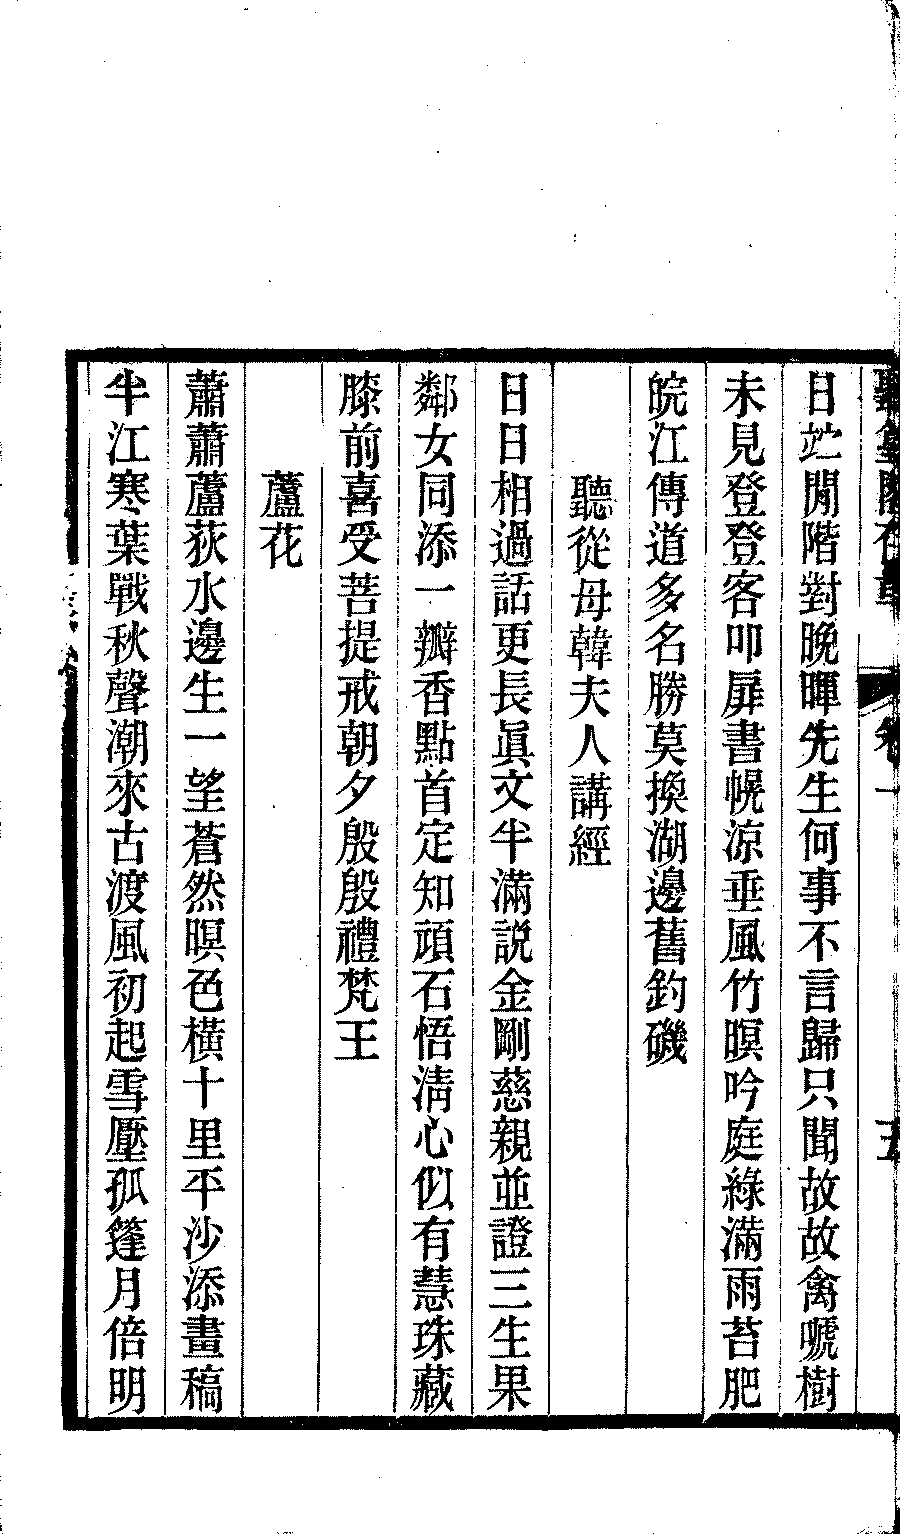 卷一
五
日㳂閒階對晚暉先生何事不言歸只聞故故禽嗁樹
未見登登客叩扉書幌涼垂風竹暝吟庭綠滿雨苔肥
皖江傳道多名勝莫換湖邊舊釣磯
聽從母韓夫人講經
日日相過話更長眞文半滿説金剛慈親並證三生果
鄰女同添一瓣香點首定知頑石悟淸心似有慧珠藏
膝前喜受菩提戒朝夕殷殷禮梵王
蘆花
蕭蕭蘆荻水邊生一望蒼然暝色橫十里平沙添畫稿
半江寒葉戰秋聲潮來古渡風初起雪壓孤篷月倍明